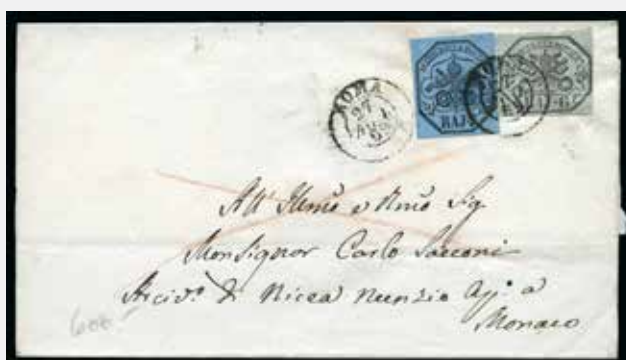 ROMA
27
BAJ
ROMA
All' Illmo e Rmo Sig
Monsignor Carlo Sacconi
Arcivo di Nicea Nunzio Apo a
Monaco
600